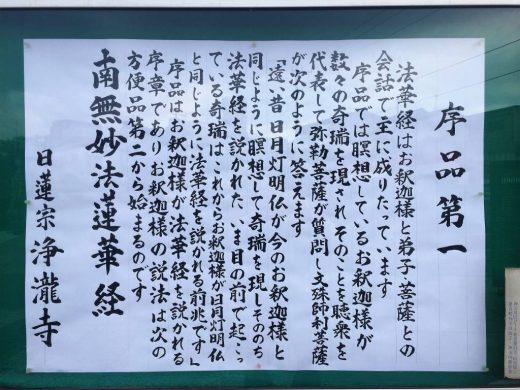 序品第一
法華経はお釈迦様と弟子・菩薩との
会話で主に成りたっています
序品では瞑想しているお釈迦様が
数々の奇瑞を現されそのことを聴衆を
代表して弥勒菩薩が質問し文殊師利菩薩
が次のように答えます
「遠い昔日月灯明仏が今のお釈迦様と
同じように瞑想して奇瑞を現しそののち
法華経を説かれたいま目の前で起こっ
ている奇瑞はこれからお釈迦様が日月灯明仏
と同じように法華経を説かれる前兆です」
序品はお釈迦様が法華経を説かれる
序章でありお釈迦様の説法は次の
方便品第二から始まるのです
南無妙法蓮華経
日蓮宗浄瀧寺